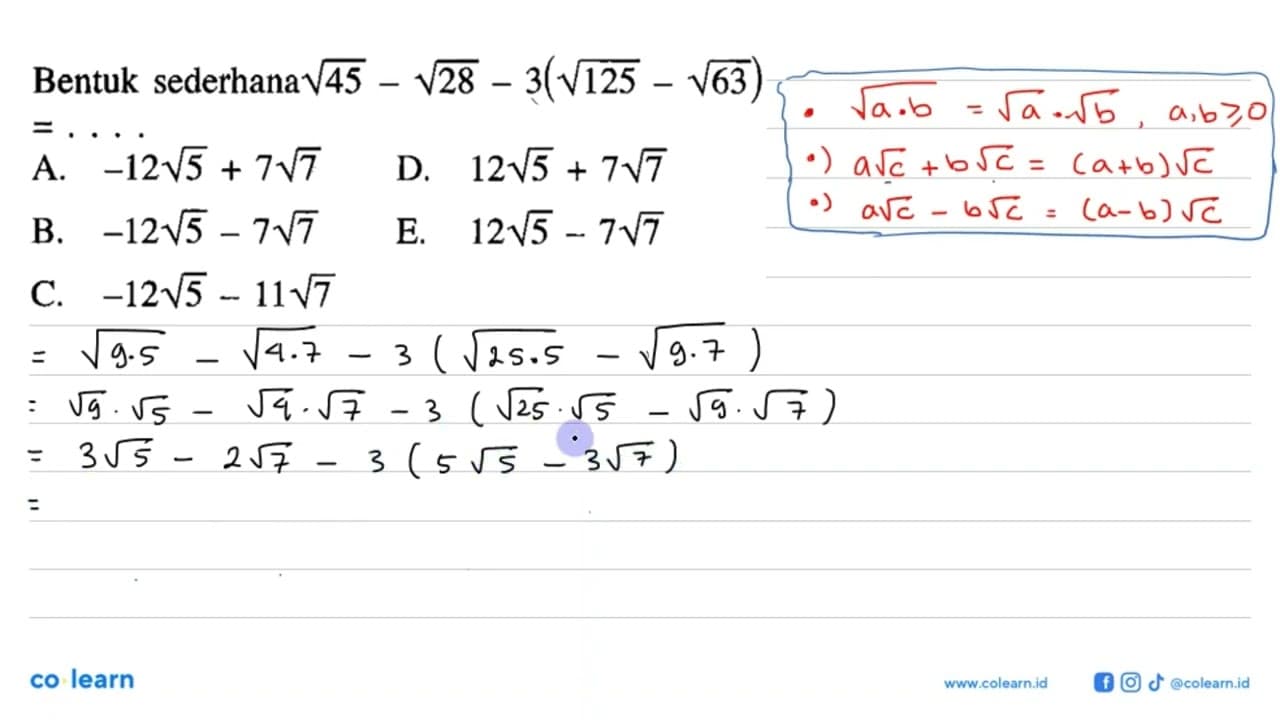 Bentuk sederhana √45 – √28 – 3(√125 – √63)
= . . . .
A. –12√5 + 7√7 D. 12√5 + 7√7
B. –12√5 – 7√7 E. 12√5 – 7√7
C. –12√5 – 11√7
• √a.b = √a . √b , a,b ≥ 0
•) a√c + b√c = (a+b)√c
•) a√c – b√c = (a–b)√c
= √9.5 – √4.7 – 3 ( √25.5 – √9.7 )
= √9 . √5 – √4 . √7 – 3 ( √25 . √5 – √9 . √7 )
= 3√5 – 2√7 – 3 ( 5√5 – 3√7 )
=
co learn
www.colearn.id
@colearn.id